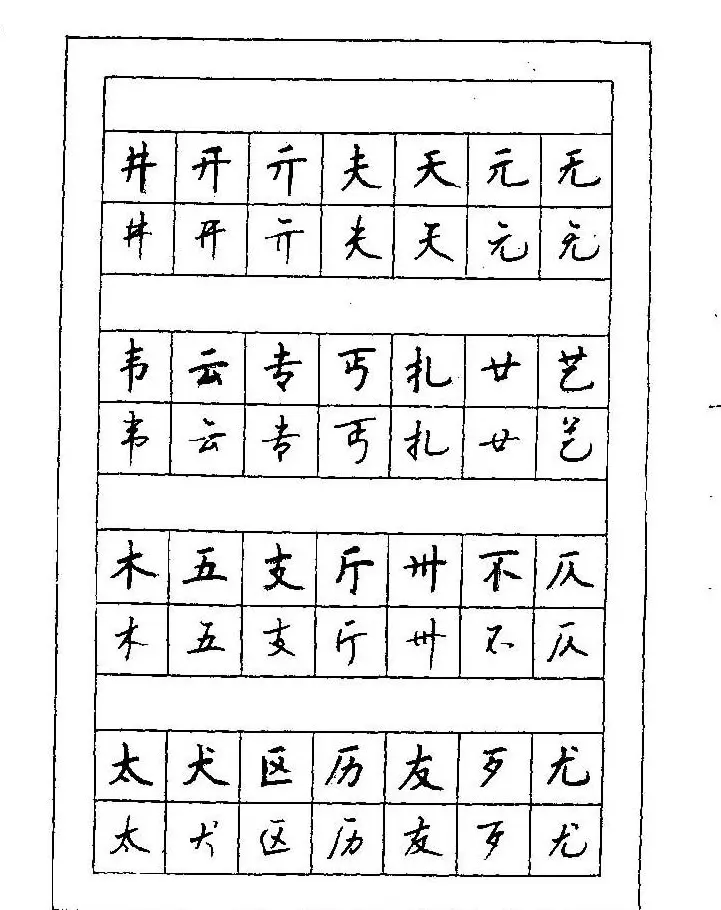 井开亓夫天元无
井开亓夫天元无
韦云专丐扎廿艺
韦云专丐扎廿艺
木五支厅卅不仄
木五支厅卅不仄
太犬区历友歹尤
太犬区历友歹尤